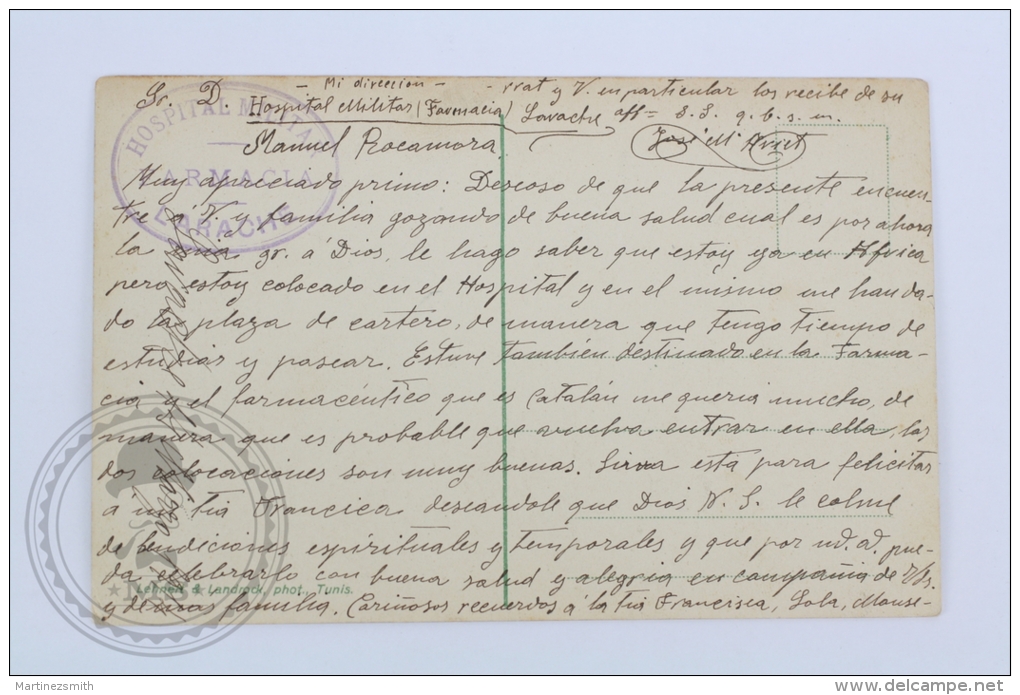 - Mi direccion -
Hospital Militar (Farmacia) Larache
Sr. D.
Manuel Rocamora
Muy apreciado primo: Deseoso de que la presente encuen-
tre á V. y familia gozando de buena salud cual es por ahora
la mia gr. á Dios, le hago saber que estoy ya en Africa
pero estoy colocado en el Hospital y en el mismo me han da-
do la plaza de cartero, de manera que tengo tiempo de
estudiar y pasear. Estuve también destinado en la Farma-
cia y el farmacéutico que es Catalán me queria mucho, de
manera que es probable que vuelva entrar en ella, las
dos colocaciones son muy buenas. Sirva esta para felicitar
á mi tia Francica deseandole que Dios N. S. le colme
de bendiciones espirituales y temporales y que por m. a. pue-
da celebrarlo con buena salud y alegria en compañia de Vds.
y demas familia. Cariñosos recuerdos á la tia Francisca, Lola, Monse-
rrat y V. en particular los recibe de su
aff= S. S. q. b. s. m.
José Mª
HOSPITAL MILITAR
FARMACIA
LARACHE
Lehnert & Landrock, phot., Tunis.
Martinezsmith
www.delcampe.net